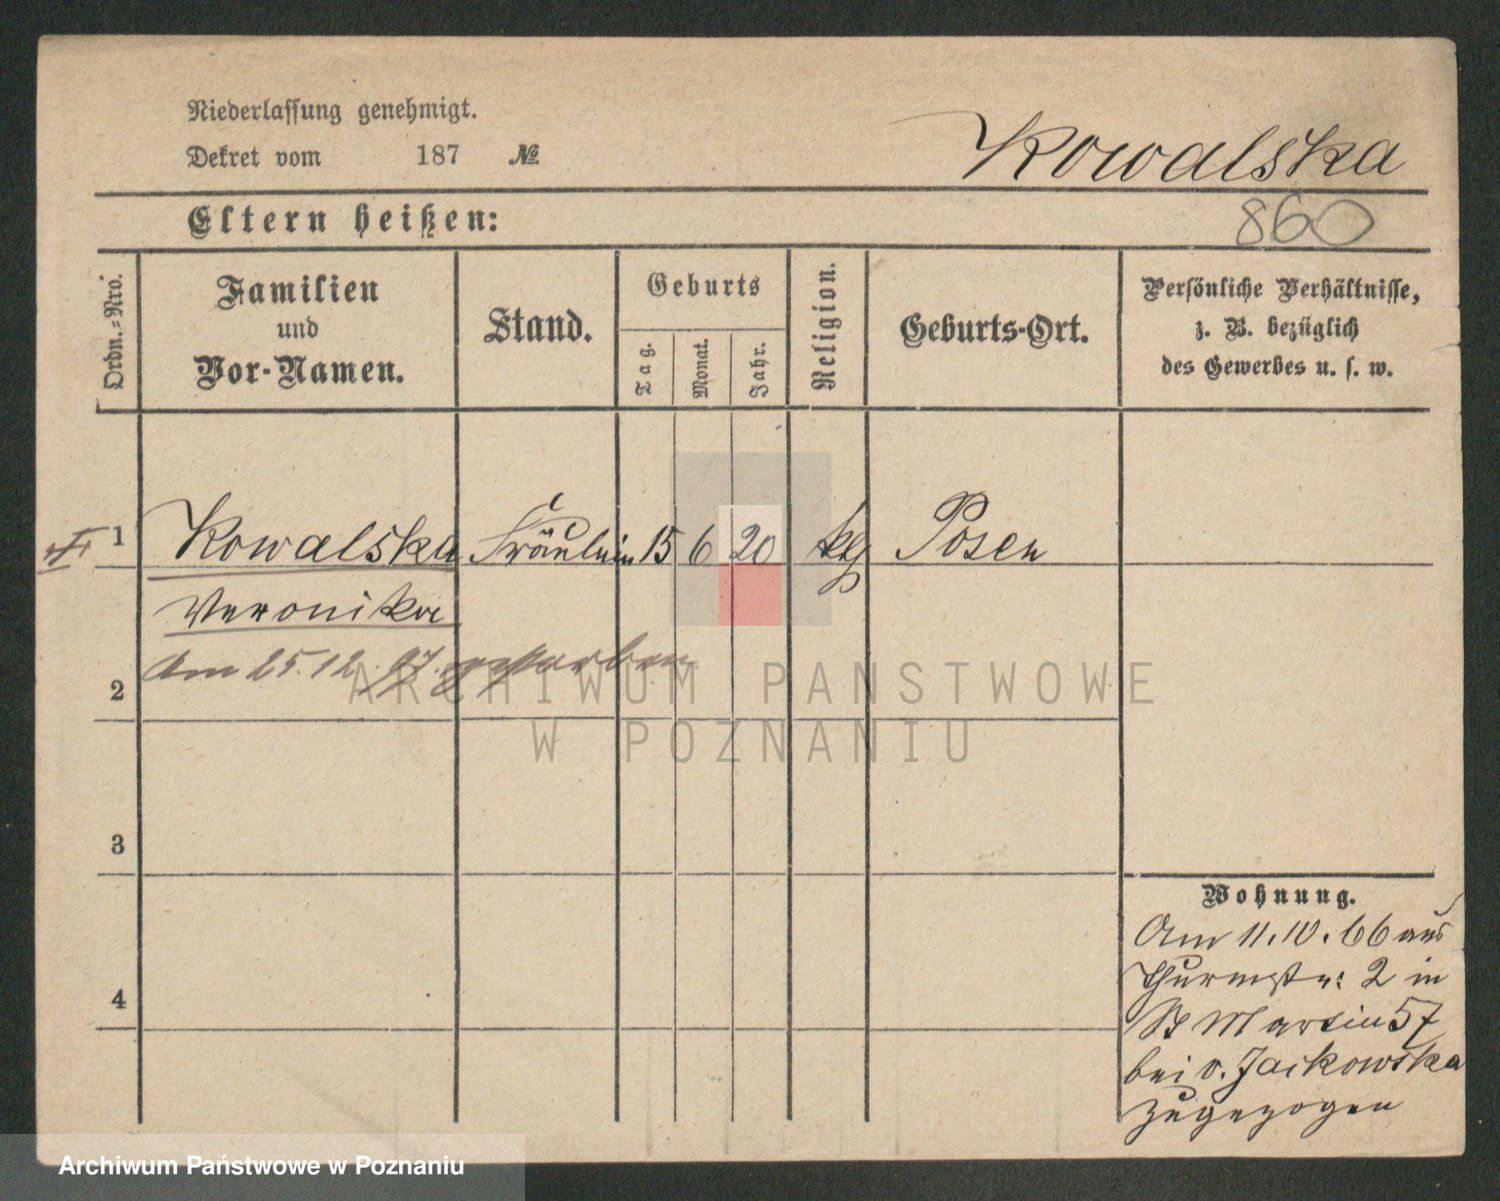 Niederlassung genehmigt.
Dekret vom 187 №
Kowalska
Eltern heißen:
860
Ordn.-Nro.
Familien
und
Vor-Namen.
Stand.
Geburts
Tag.
Monat.
Jahr.
Religion.
Geburts-Ort.
Persönliche Verhältnisse,
z. B. bezüglich
des Gewerbes u. s. w.
1 Kowalska Fräulein 15 6 20 Posen
Veronika
Am 25.12.97. gestorben
2
3
4
Wohnung.
Am 11.10.66 aus
Thurmstr: 2 in
St Martin 57
bei v. Jackowska
zugezogen
ARCHIWUM PAŃSTWOWE
W POZNANIU
Archiwum Państwowe w Poznaniu